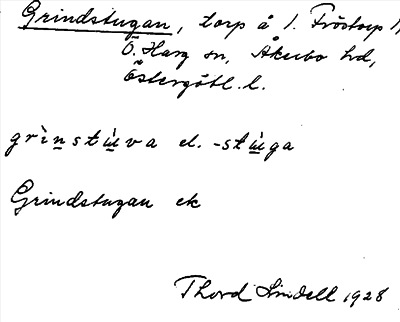 Grindstugan, torp å 1. Fröstorp 1,
Ö. Harg sn, Åkerbo hd,
Östergötl. l.
grìnstu̇va el. -stu̇ga
Grindstugan ek
Thord Lindell 1928